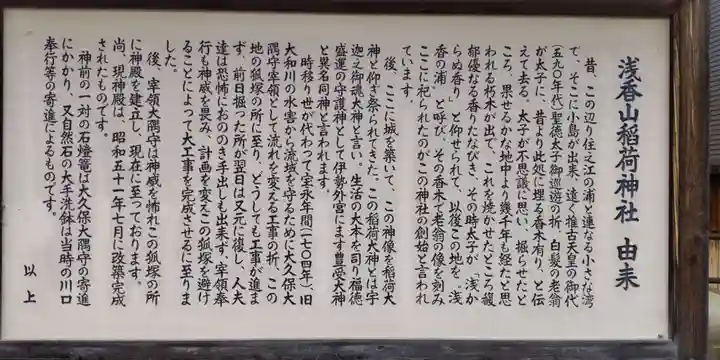 浅香山稲荷神社 由来
昔、この辺り住之江の浦と連なる小さな湾
で、そこに小島が出来、遠く推古天皇の御代
(五九〇年代)聖徳太子御巡遊の折、白髪の老翁
が太子に、昔より此処に埋る香木有り、と伝
えて去る。太子が不思議に思い、掘らせたと
ころ、果せるかな地中より幾千年も経たと思
われる朽木が出で、これを焼かせたところ馥
郁優なる香りたなびき、その時太子が「浅か
らぬ香り」と仰せられて、以後この地を「浅
香の浦」と呼び、その香木で老翁の像を刻み
ここに祀られたのがこの神社の創始と言われ
ています。
後、ここに城を築いて、この神像を稲荷大
神と仰ぎ祭られてきた。この稲荷大神とは宇
迦之御魂大神と言い、生活の大本を司り福徳
盛運の守護神として伊勢外宮にます豊受大神
と異名同神と言われます。
時移り世が代わって宝永年間(一七〇四年)、旧
大和川の水害から流域を守るために大久保大
隅守宰領として流れを変える工事の折、この
地の狐塚の所に至り、どうしても工事が進ま
ず、前日掘った所が翌日は又元に復し、人夫
達は恐怖におののき手出しも出来ず、宰領奉
行も神威を畏み、計画を変えこの狐塚を避け
ることによって大工事を完成させるに至りま
した。
後、宰領大隅守は神威を怖れこの狐塚の所
に神殿を建立し、現在に至っております。
尚、現神殿は、昭和五十一年七月に改築完成
されたものです。
神前の一対の石燈篭は大久保大隅守の寄進
にかかり、又自然石の大手洗鉢は当時の川口
奉行等の寄進によるものです。
以上